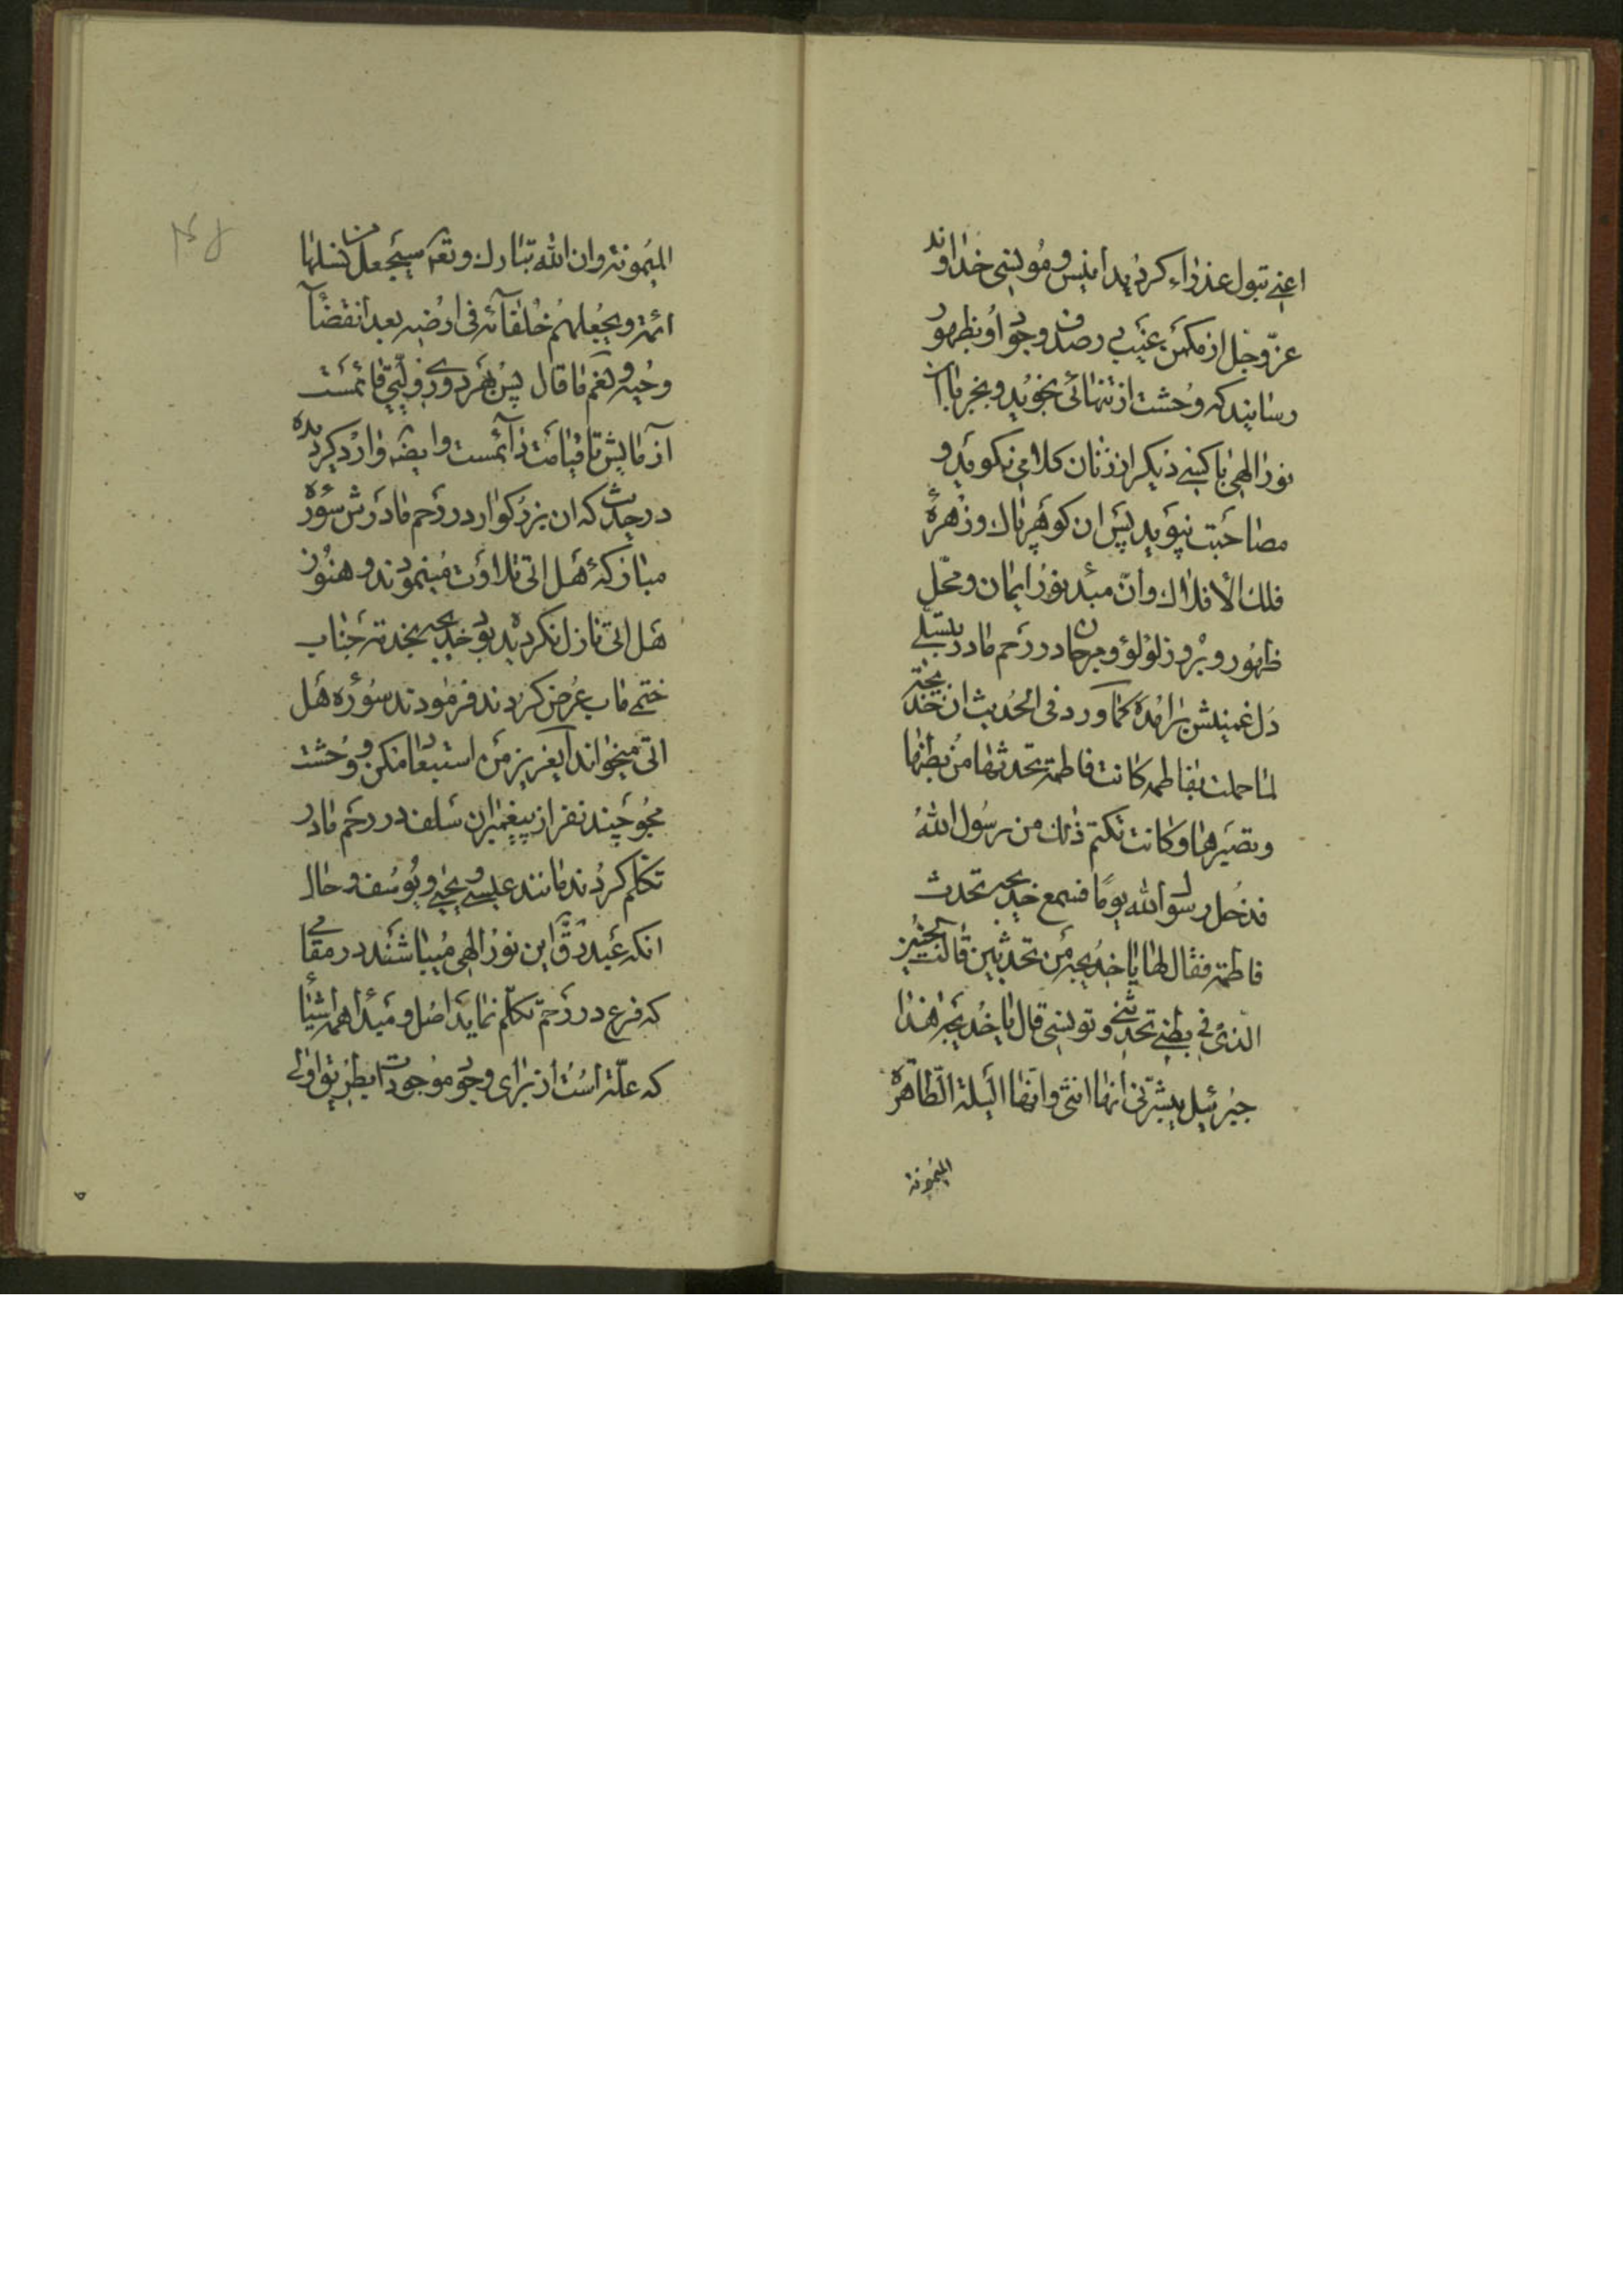 اعنی بتول عذراء کردید انیس و مونسی خداوند
عزّ و جل از مکمن غیب در صدف وجود او بظهور
رسانید که وحشت از تنهائی نجوید و بجز با آن
نور الهی با کسی دیکر از زنان کلامی نکوید و
مصاحبت نپوید پس ان کوهر پاک و زهرهٔ
فلک الأفلاک و ان مبدء نور ایمان و محّل
ظهور و بروز لؤلؤ و مرجان در رحم مادر بتسلی
دل غمینش برامده کما ورد فی الحدیث ان خدیجة
لما حملت بفاطمه کانت فاطمة تحدثها من بطنها
و تصبرها و کانت تکتم ذلک من رسول الله
فدخل رسول الله یومًا فسمع خدیجه تحدث
فاطمة فقال لها یا خدیجه من تحدثین قالت الجنین
الّذی فی بطنی تحدثنی و تونسنی قال یا خدیجه هذا
جبرئیل یبشّرنی انها انثی و انها النسلة الطّاهرة
المیمونة
المیمونة و ان الله تبارک و تعه سیجعل من نسلها
ائمة و یجعلهم خلفآئه فی ارضه بعد انقضآء
وحیه و نعم ما قال پس بهر دوری ولیّی قائمست
آزمایش تا قیامت دآئمست و ایضه وارد کردیده
در حدیث که ان بزرکوار در رحم مادرش سورهٔ
مبارکهٔ هل اتی تلاوت مینمودند و هنوز
هل اتی نازل نکردیده بود خدیجه بخدمة جناب
ختمی ماب عرض کردند فرمودند سوره هل
اتی میخواند ایعزیز من استبعاد مکن و وحشت
مجو چند نفر از پیغمبران سلف در رحم مادر
تکلم کردند مانند عیسی و یحیی و یوسف و حال
انکه عبد رقّ این نور الهی میباشند در مقامی
که فرع در رحم تکلّم نماید اصل و مبدا همه اشیأ
که علّة است از برای وجود موجودات بطریق اولی